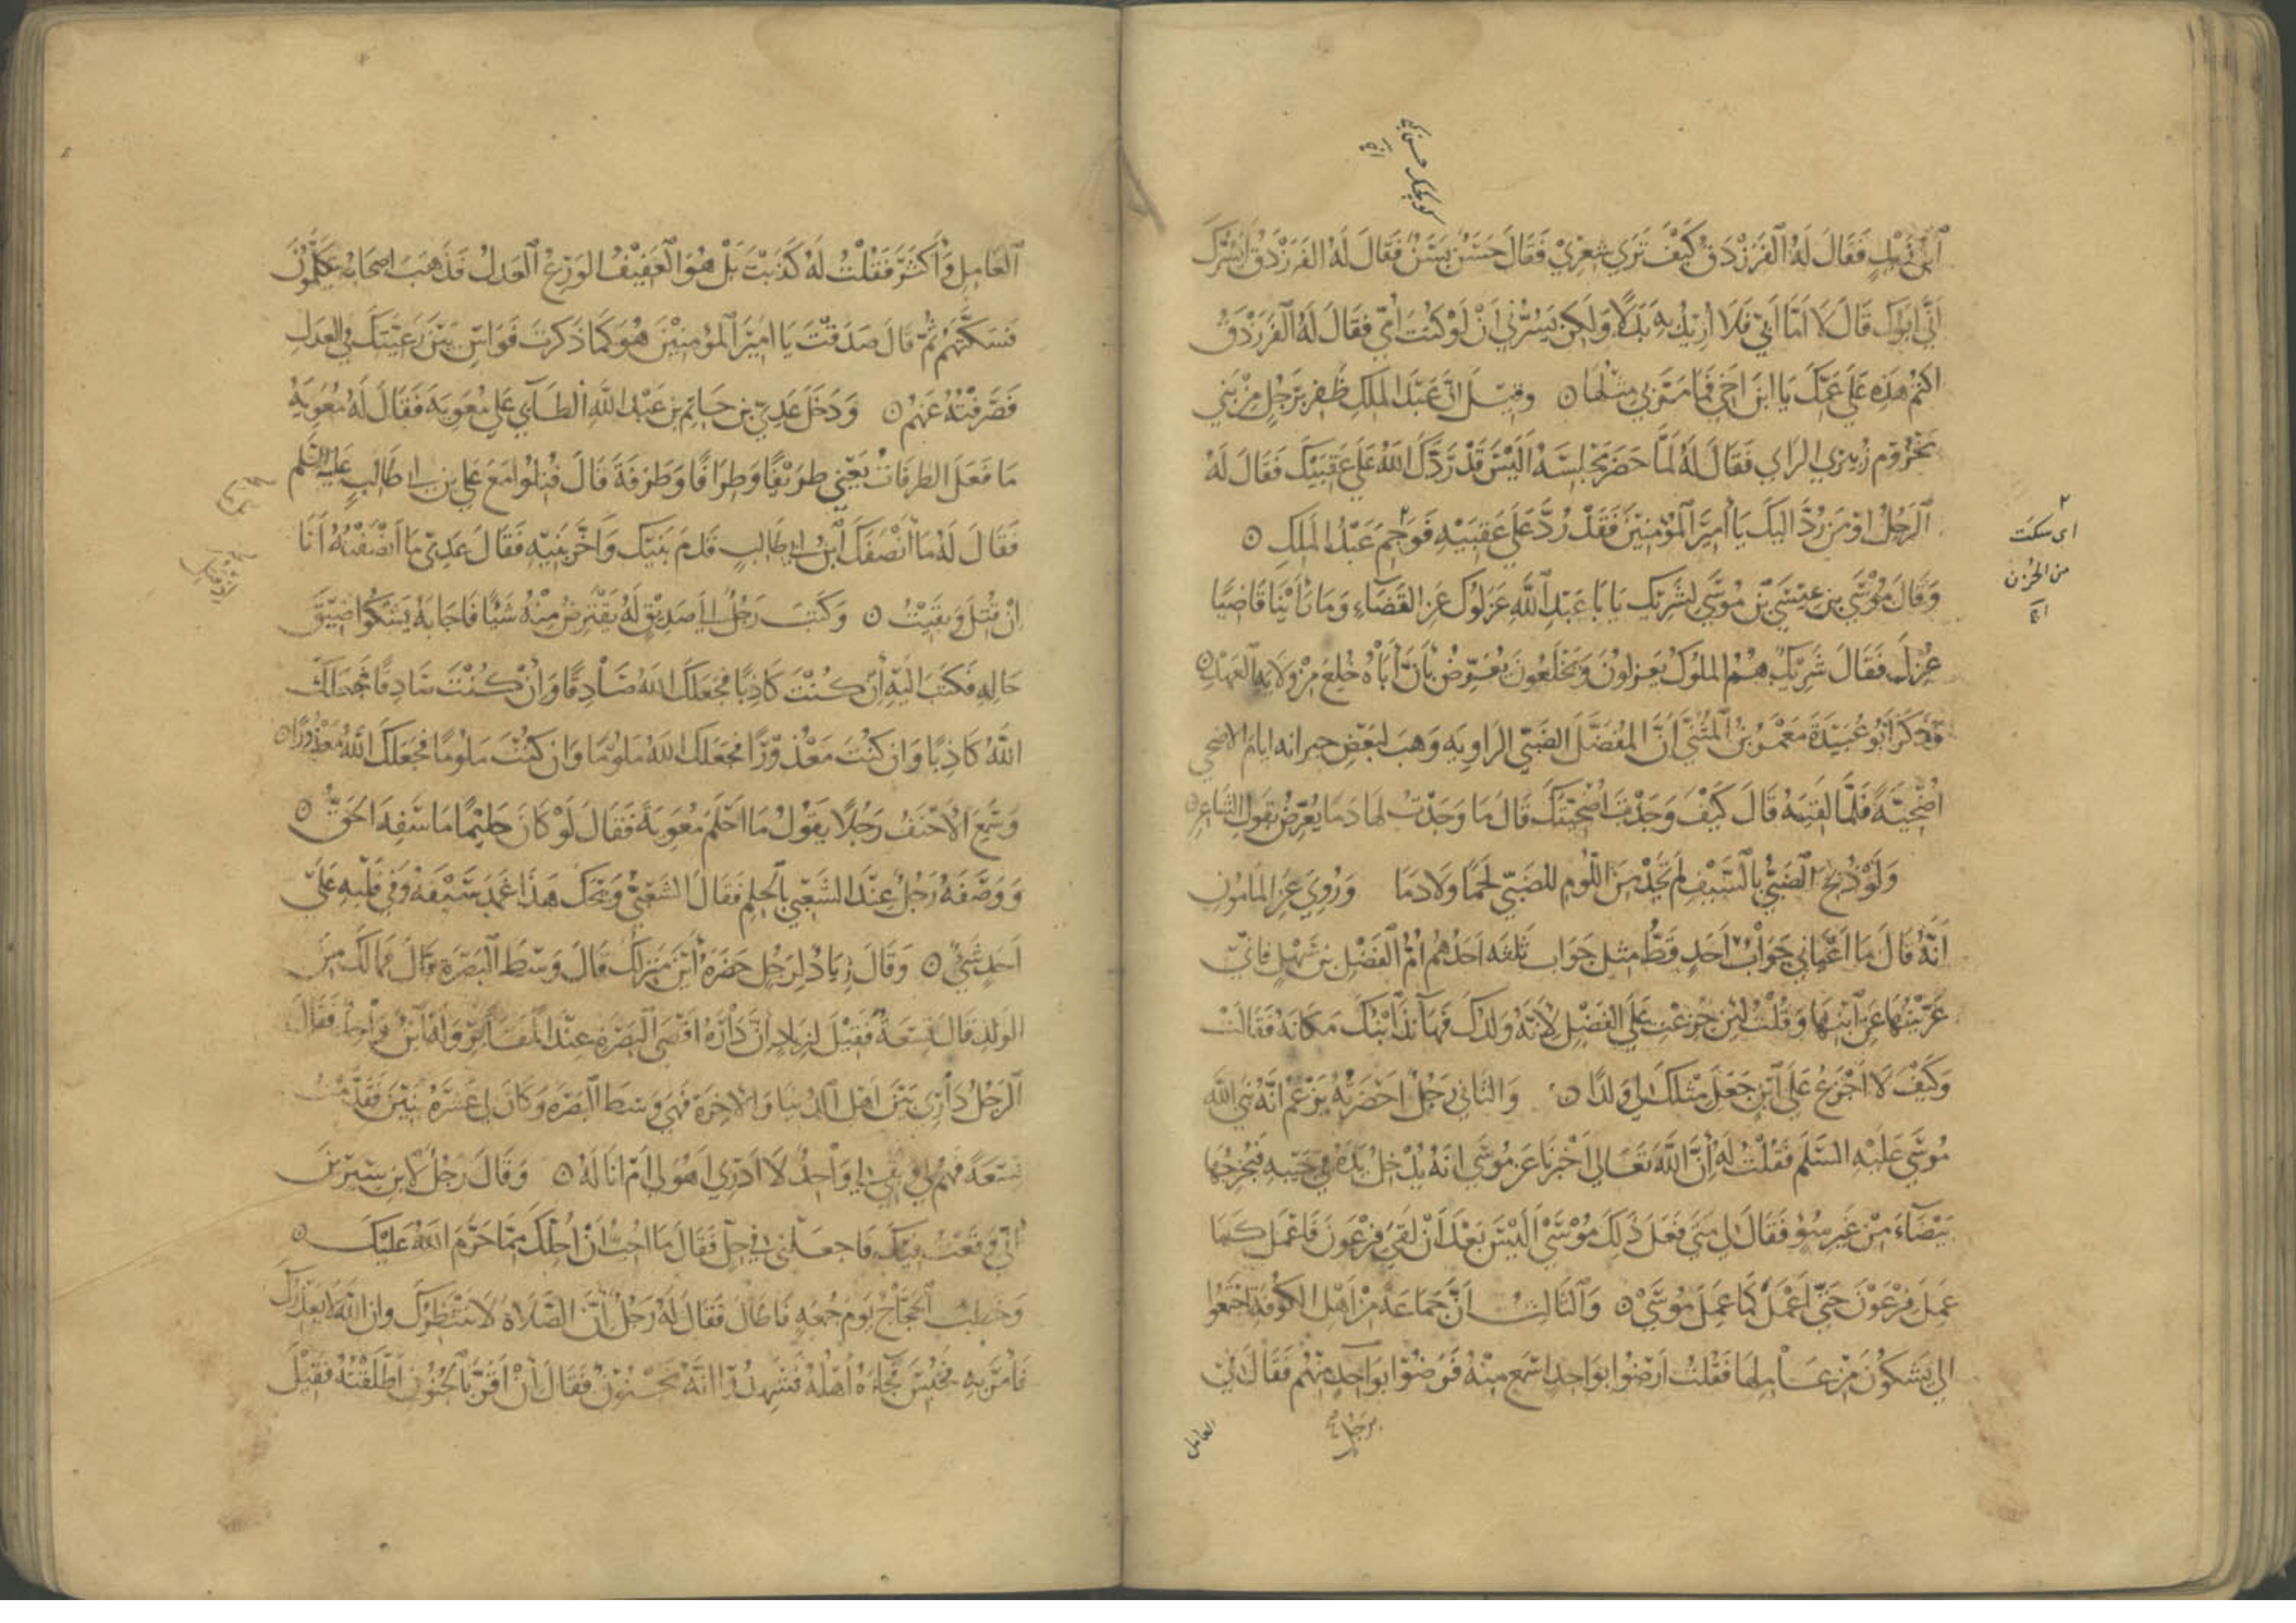 فَقَالَ لَهُ الْفَرَزْدَقُ كَيْفَ تَرَى شِعْرِي فَقَالَ حَسَنٌ بَسَنٌ فَقَالَ لَهُ الفَرَزْدَقُ أَيَسُرُّكَ
أَنِّي أَبُوكَ قَالَ لَا أَمَّا أَبِي فَلَا أُرِيدُ بِهِ بَدَلًا وَلَكِنْ يَسُرُّنِي أَنْ لَوْ كُنْتَ أُمِّي فَقَالَ لَهُ الْفَرَزْدَقُ
اكْتُمْ هَذِهِ عَلَى عَمِّكَ يَا ابْنَ أَخِي فَمَا مَرَّ بِي مِثْلُهَا ۝ وَقِيلَ إِنَّ عَبْدَ الْمَلِكِ ظَفِرَ بِرَجُلٍ مِنْ بَنِي
مَخْزُومٍ زُبَيْرِيِّ الرَّأْيِ فَقَالَ لَهُ لَمَّا حَضَرَ مَجْلِسَهُ أَلَيْسَ قَدْ رَدَّكَ اللَّهُ عَلَى عَقِبَيْكَ فَقَالَ لَهُ
الرَّجُلُ أَوَمَنْ رُدَّ إِلَيْكَ يَا أَمِيرَ الْمُؤْمِنِينَ فَقَدْ رُدَّ عَلَى عَقِبَيْهِ فَوَجَمَ عَبْدُ الْمَلِكِ ۝
٢ اى سكت
من الحزن
وَقَالَ مُوسَى بْنُ عِيسَى بْنِ مُوسَى لِشَرِيكٍ يَا بَا عَبْدِ اللَّهِ عَزَلُوكَ عَنِ القَضَاءِ وَمَا رَأَيْنَا قَاضِيًا
عُزِلَ فَقَالَ شَرِيكٌ هُمُ المُلُوكُ يَعْزِلُونَ وَيُخْلَعُونَ يُعَرِّضُ بِأَنَّ أَبَاهُ خُلِعَ مِنْ وِلَايَةِ الْعَهْدِ ۝
وَذَكَرَ أَبُو عُبَيْدَةَ مَعْمَرُ بْنُ الْمُثَنَّى أَنَّ المُفَضَّلَ الضَّبِّيَّ الرَّاوِيَةَ وَهَبَ لِبَعْضِ جِيرَانِهِ أَيَّامَ الأَضْحَى
أُضْحِيَّةً فَلَمَّا لَقِيَهُ قَالَ كَيْفَ وَجَدْتَ أُضْحِيَّتَكَ قَالَ مَا وَجَدْتُ لَهَا دَمًا يُعَرِّضُ بِقَوْلِ الشَّاعِرِ ۝
وَلَوْ ذُبِحَ الضَّبِّيُّ بِالسَّيْفِ لَمْ تَجِدْ مِنَ اللُّومِ لِلضَّبِّيِّ لَحْمًا وَلَا دَمَا وَرُوِيَ عَنِ المَأْمُونِ
أَنَّهُ قَالَ مَا أَعْيَانِي جَوَابُ أَحَدٍ قَطُّ مِثْلَ جَوَابِ ثَلَثَةٍ أَحَدُهُمْ أُمُّ الْفَضْلِ بْنِ سَهْلٍ فَإِنِّي
عَزَّيْتُهَا عَنِ ابْنِهَا وَقُلْتُ لَئِنْ جَزِعْتِ عَلَى الفَضْلِ لِأَنَّهُ وَلَدُكِ فَهَأَنَذَا ابْنُكِ مَكَانَهُ فَقَالَتْ
وَكَيْفَ لَا أَجْزَعُ عَلَى ابْنٍ جَعَلَ مِثْلَكَ لِي وَلَدًا ۝ وَالثَّانِي رَجُلٌ أَحْضَرْتُهُ يَزْعُمُ أَنَّهُ نَبِيُّ اللَّهِ
مُوسَى عَلَيْهِ السَّلَمُ فَقُلْتُ لَهُ إِنَّ اللَّهَ تَعَالَى أَخْبَرَنَا عَنْ مُوسَى أَنَّهُ يُدْخِلُ يَدَهُ فِي جَيْبِهِ فَيُخْرِجُهَا
بَيْضَاءَ مِنْ غَيْرِ سُوءٍ فَقَالَ لِي مَتَى فَعَلَ ذَلِكَ مُوسَى أَلَيْسَ بَعْدَ أَنْ لَقِيَ فِرْعَوْنَ فَاعْمَلْ كَمَا
عَمِلَ فِرْعَوْنُ حَتَّى أَعْمَلَ كَمَا عَمِلَ مُوسَى ۝ وَالثَّالِثُ أَنَّ جَمَاعَةً مِنْ أَهْلِ الكُوفَةِ اجْتَمَعُوا
إِلَيَّ يَشْكُونَ مِنْ عَامِلِهَا فَقُلْتُ ارْضُوا بِوَاحِدٍ أَسْمَعُ مِنْهُ فَرَضُوا بِوَاحِدٍ مِنْهُمْ فَقَالَ لِي
العامل
الْعَامِلِ وَأَكْثَرَ فَقُلْتُ لَهُ كَذَبْتَ بَلْ هُوَ الْعَفِيفُ الوَرِعُ الْعَدْلُ فَذَهَبَ أَصْحَابُهُ يَتَكَلَّمُونَ
فَسَكَّتَهُمْ ثُمَّ قَالَ صَدَقْتَ يَا أَمِيرَ الْمُؤْمِنِينَ هُوَ كَمَا ذَكَرْتَ فَوَاسِ بَيْنَ رَعِيَّتِكَ فِي العَدْلِ
فَصَرَفْتُهُ عَنْهُمْ ۝ وَدَخَلَ عَدِيُّ بْنُ حَاتِمِ بْنِ عَبْدِ اللَّهِ الطَّائِيُّ عَلَى مُعَوِيَةَ فَقَالَ لَهُ مُعَوِيَةُ
مَا فَعَلَ الطَّرَفَاتُ يَعْنِي طَرِيفًا وَطِرَافًا وَطَرَفَةَ قَالَ قُتِلُوا مَعَ عَلِيِّ بْنِ أَبِي طَالِبٍ عَلَيْهِ السَّلَمُ
فَقَالَ لَهُ مَا أَنْصَفَكَ ابْنُ أَبِي طَالِبٍ قَدَّمَ بَنِيكَ وَأَخَّرَ بَنِيهِ فَقَالَ عَدِيٌّ مَا أَنْصَفْتُهُ أَنَا
إِنْ قُتِلَ وَبَقِيتُ ۝ وَكَتَبَ رَجُلٌ إِلَى صَدِيقٍ لَهُ يَقْتَرِضُ مِنْهُ شَيْئًا فَأَجَابَهُ يَشْكُوا ضِيقَ
حَالِهِ فَكَتَبَ إِلَيْهِ إِنْ كُنْتَ كَاذِبًا فَجَعَلَكَ اللَّهُ صَادِقًا وَإِنْ كُنْتَ صَادِقًا فَجَعَلَكَ
اللَّهُ كَاذِبًا وَإِنْ كُنْتَ مَعْذُورًا فَجَعَلَكَ اللَّهُ مَلُومًا وَإِنْ كُنْتَ مَلُومًا فَجَعَلَكَ اللَّهُ مَعْذُورًا ۝
وَسَمِعَ الأَحْنَفُ رَجُلًا يَقُولُ مَا أَحْلَمَ مُعَوِيَةَ فَقَالَ لَوْ كَانَ حَلِيمًا مَا سَفِهَ الْحَقَّ ۝
وَوَصَفَهُ رَجُلٌ عِنْدَ الشَّعْبِيِّ بِالْحِلْمِ فَقَالَ الشَّعْبِيُّ وَيْحَكَ هَذَا غَمَدَ سَيْفَهُ وَفِي قَلْبِهِ عَلَى
أَحَدٍ شَيْءٌ ۝ وَقَالَ زِيَادٌ لِرَجُلٍ حَضَرَهُ أَيْنَ مَنْزِلُكَ قَالَ وَسَطَ الْبَصْرَةِ قَالَ فَمَا لَكَ مِنَ
الوَلَدِ قَالَ تِسْعَةٌ فَقِيلَ لِزِيَادٍ إِنَّ دَارَهُ أَقْصَى الْبَصْرَةِ عِنْدَ الْمَقَابِرِ وَلَهُ ابْنٌ وَاحِدٌ فَقَالَ
الرَّجُلُ دَارِي بَيْنَ أَهْلِ الدُّنْيَا وَالْآخِرَةِ فَهِيَ وَسَطَ الْبَصْرَةِ وَكَانَ لِي عَشَرَةُ بَنِينَ فَقَدَّمْتُ
تِسْعَةً فَهُمْ لِي وَبَقِيَ لِي وَاحِدٌ لَا أَدْرِي أَهُوَ لِي أَمْ أَنَا لَهُ ۝ وَقَالَ رَجُلٌ لِابْنِ سِيرِينَ
إِنِّي وَقَعْتُ فِيكَ فَاجْعَلْنِي فِي حِلٍّ فَقَالَ مَا أُحِبُّ أَنْ أُحِلَّكَ مِمَّا حَرَّمَ اللَّهُ عَلَيْكَ ۝
وَخَطَبَ الْحَجَّاجُ يَوْمَ جُمُعَةٍ فَأَطَالَ فَقَالَ لَهُ رَجُلٌ إِنَّ الصَّلَاةَ لَا تَنْتَظِرُكَ وَإِنَّ اللَّهَ لَا يَعْذِرُكَ
فَأَمَرَ بِهِ فَحُبِسَ فَجَاءَهُ أَهْلُهُ فَشَهِدُوا أَنَّهُ مَجْنُونٌ فَقَالَ إِنْ أَقَرَّ بِالْجُنُونِ أَطْلَقْتُهُ فَقِيلَ